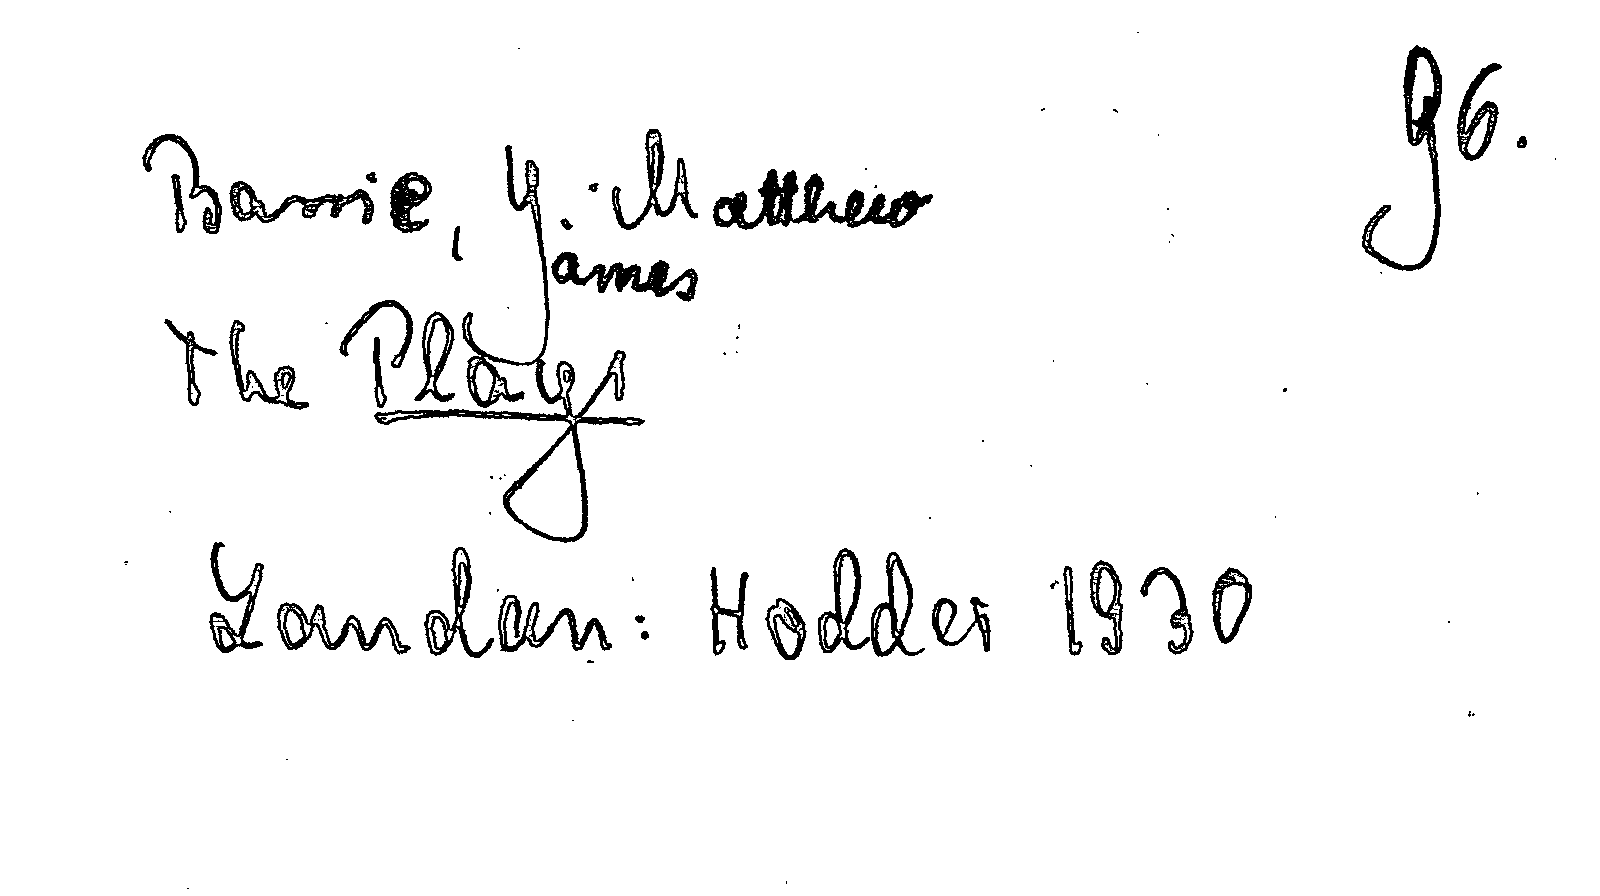 96.
Barrie, J. Matthew
James
The Plays
London: Hodder 1930